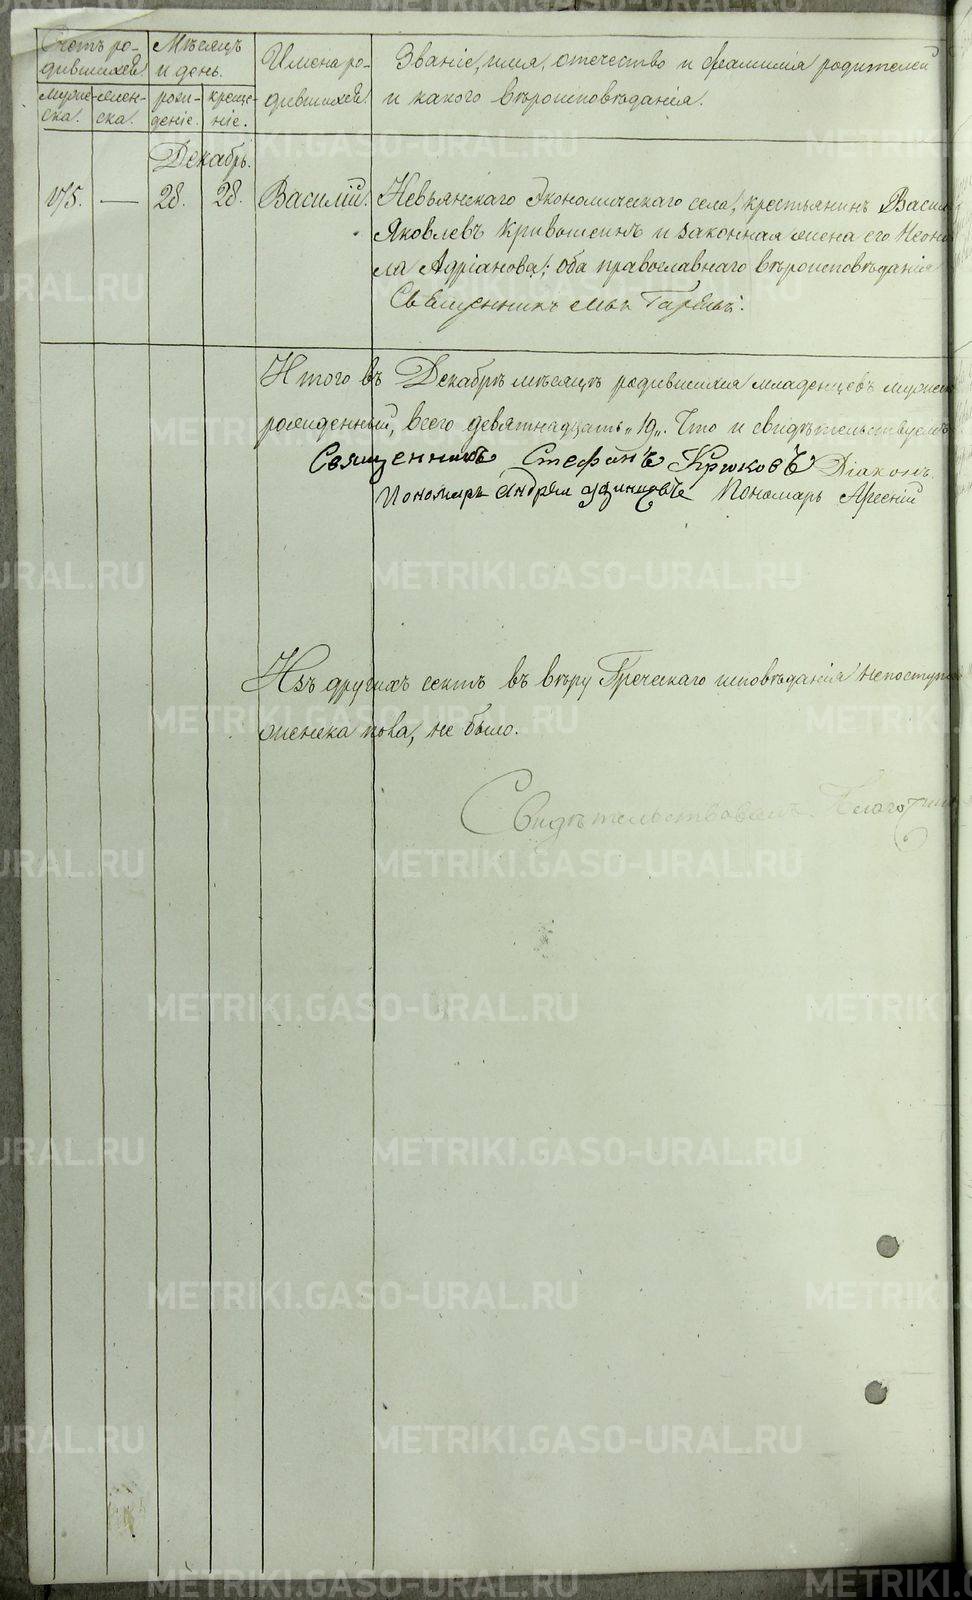 Счетъ ро-
дившихся.
Мѣсяцъ
и день.
Имена ро-
дившихся.
Званіе, имя, отечество и фамилія родителей
и какого вѣроисповѣданія.
Муже-
ска.
Жен-
ска.
рож-
деніе.
креще-
ніе.
Декабрь.
175.
—
28.
28.
Василій.
Невьянскаго Экономическаго села, крестьянинъ Васил
Яковлевъ Кривошеинъ и законная жена его Неони
ла Адріанова; оба православнаго вѣроисповѣданія
Священникъ
Итого въ Декабрѣ мѣсяцѣ родившихся младенцевъ мужеска
всего девятнадцать „19„. Что и свидѣтельствуемъ
Священникъ Стефанъ Крюковъ Діаконъ
Пономарь Андрей Пономарь Арсеній
Изъ другихъ сектъ въ вѣру Греческаго исповѣданія непоступ
не было.
Свидѣтельствовалъ Благочин
METRIKI.GASO-URAL.RU